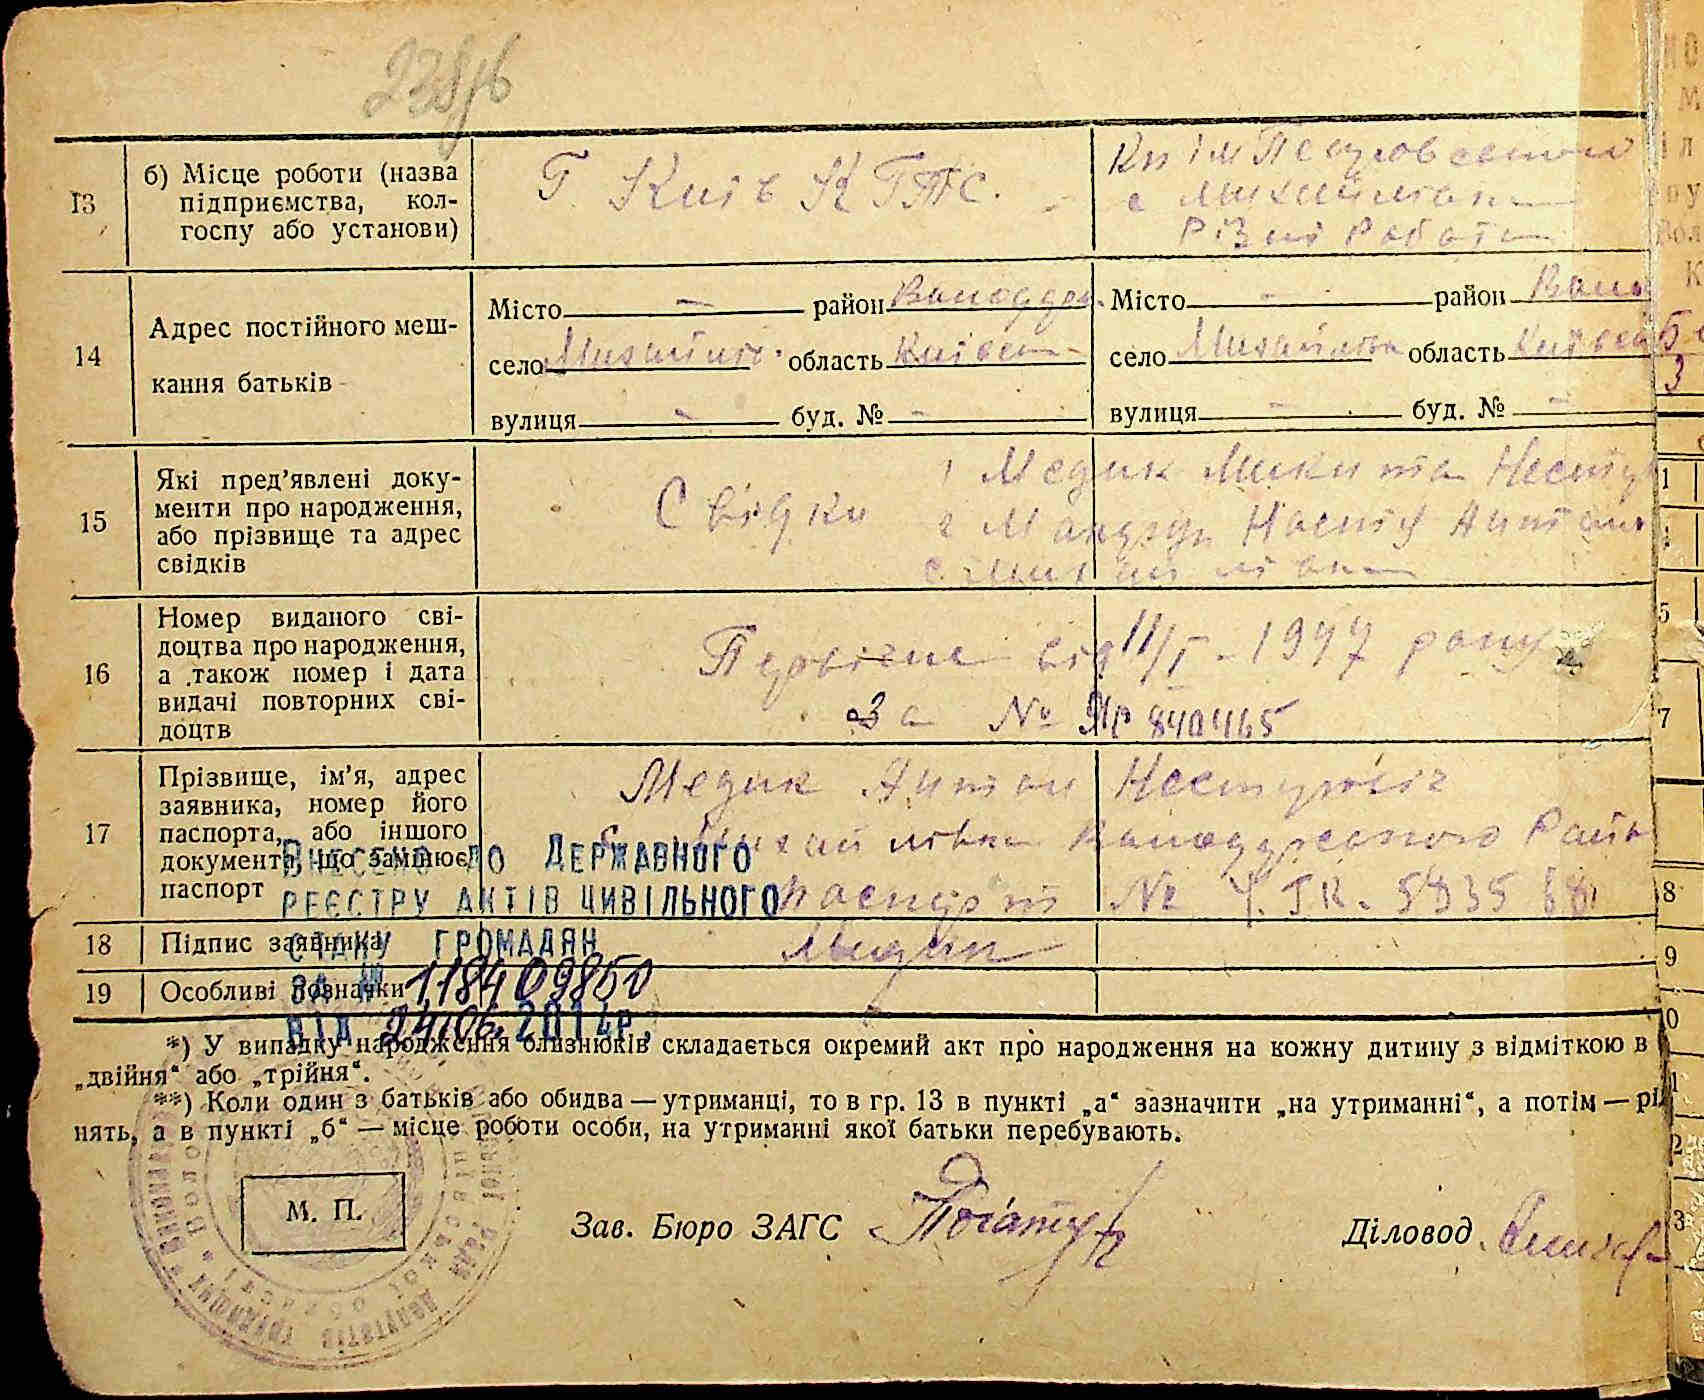 238
13
б) Місце роботи (назва
підприємства, кол-
госпу або установи)
Г. Київ К
Кп ім Петровського
с Михайлівка
Різні Работи
14
Адрес постійного меш-
кання батьків
Місто — район Володар.
село область Київськ
вулиця — буд. № —
Місто — район Воло
село Михайлівка область Київськ
вулиця — буд. № —
15
Які пред’явлені доку-
менти про народження,
або прізвище та адрес
свідків
Свідки
1 Медик Микита Нест
2 Настя Антон
с. Михайлівка
16
Номер виданого сві-
доцтва про народження,
а також номер і дата
видачі повторних сві-
доцтв
Первісне від 11/I - 1947 року
За № 840465
17
Прізвище, ім’я, адрес
заявника, номер його
паспорта, або іншого
документа, що замінює
паспорт
Медик Антон Несторович
с. Михайлівка Володарського Райо
паспорт №
18
Підпис заявника
Медик
19
Особливі познач­ки
Внесено до Державного
реєстру актів цивільного
стану громадян
за № 118409850
від 24.06.2014р.
*) У випадку народження близнюків складається окремий акт про народження на кожну дитину з відміткою в
„двійня“ або „трійня“.
**) Коли один з батьків або обидва — утриманці, то в гр. 13 в пункті „а“ зазначити „на утриманні“, а потім — рі
нять, а в пункті „б“ — місце роботи особи, на утриманні якої батьки перебувають.
М. П.
Зав. Бюро ЗАГС
Діловод